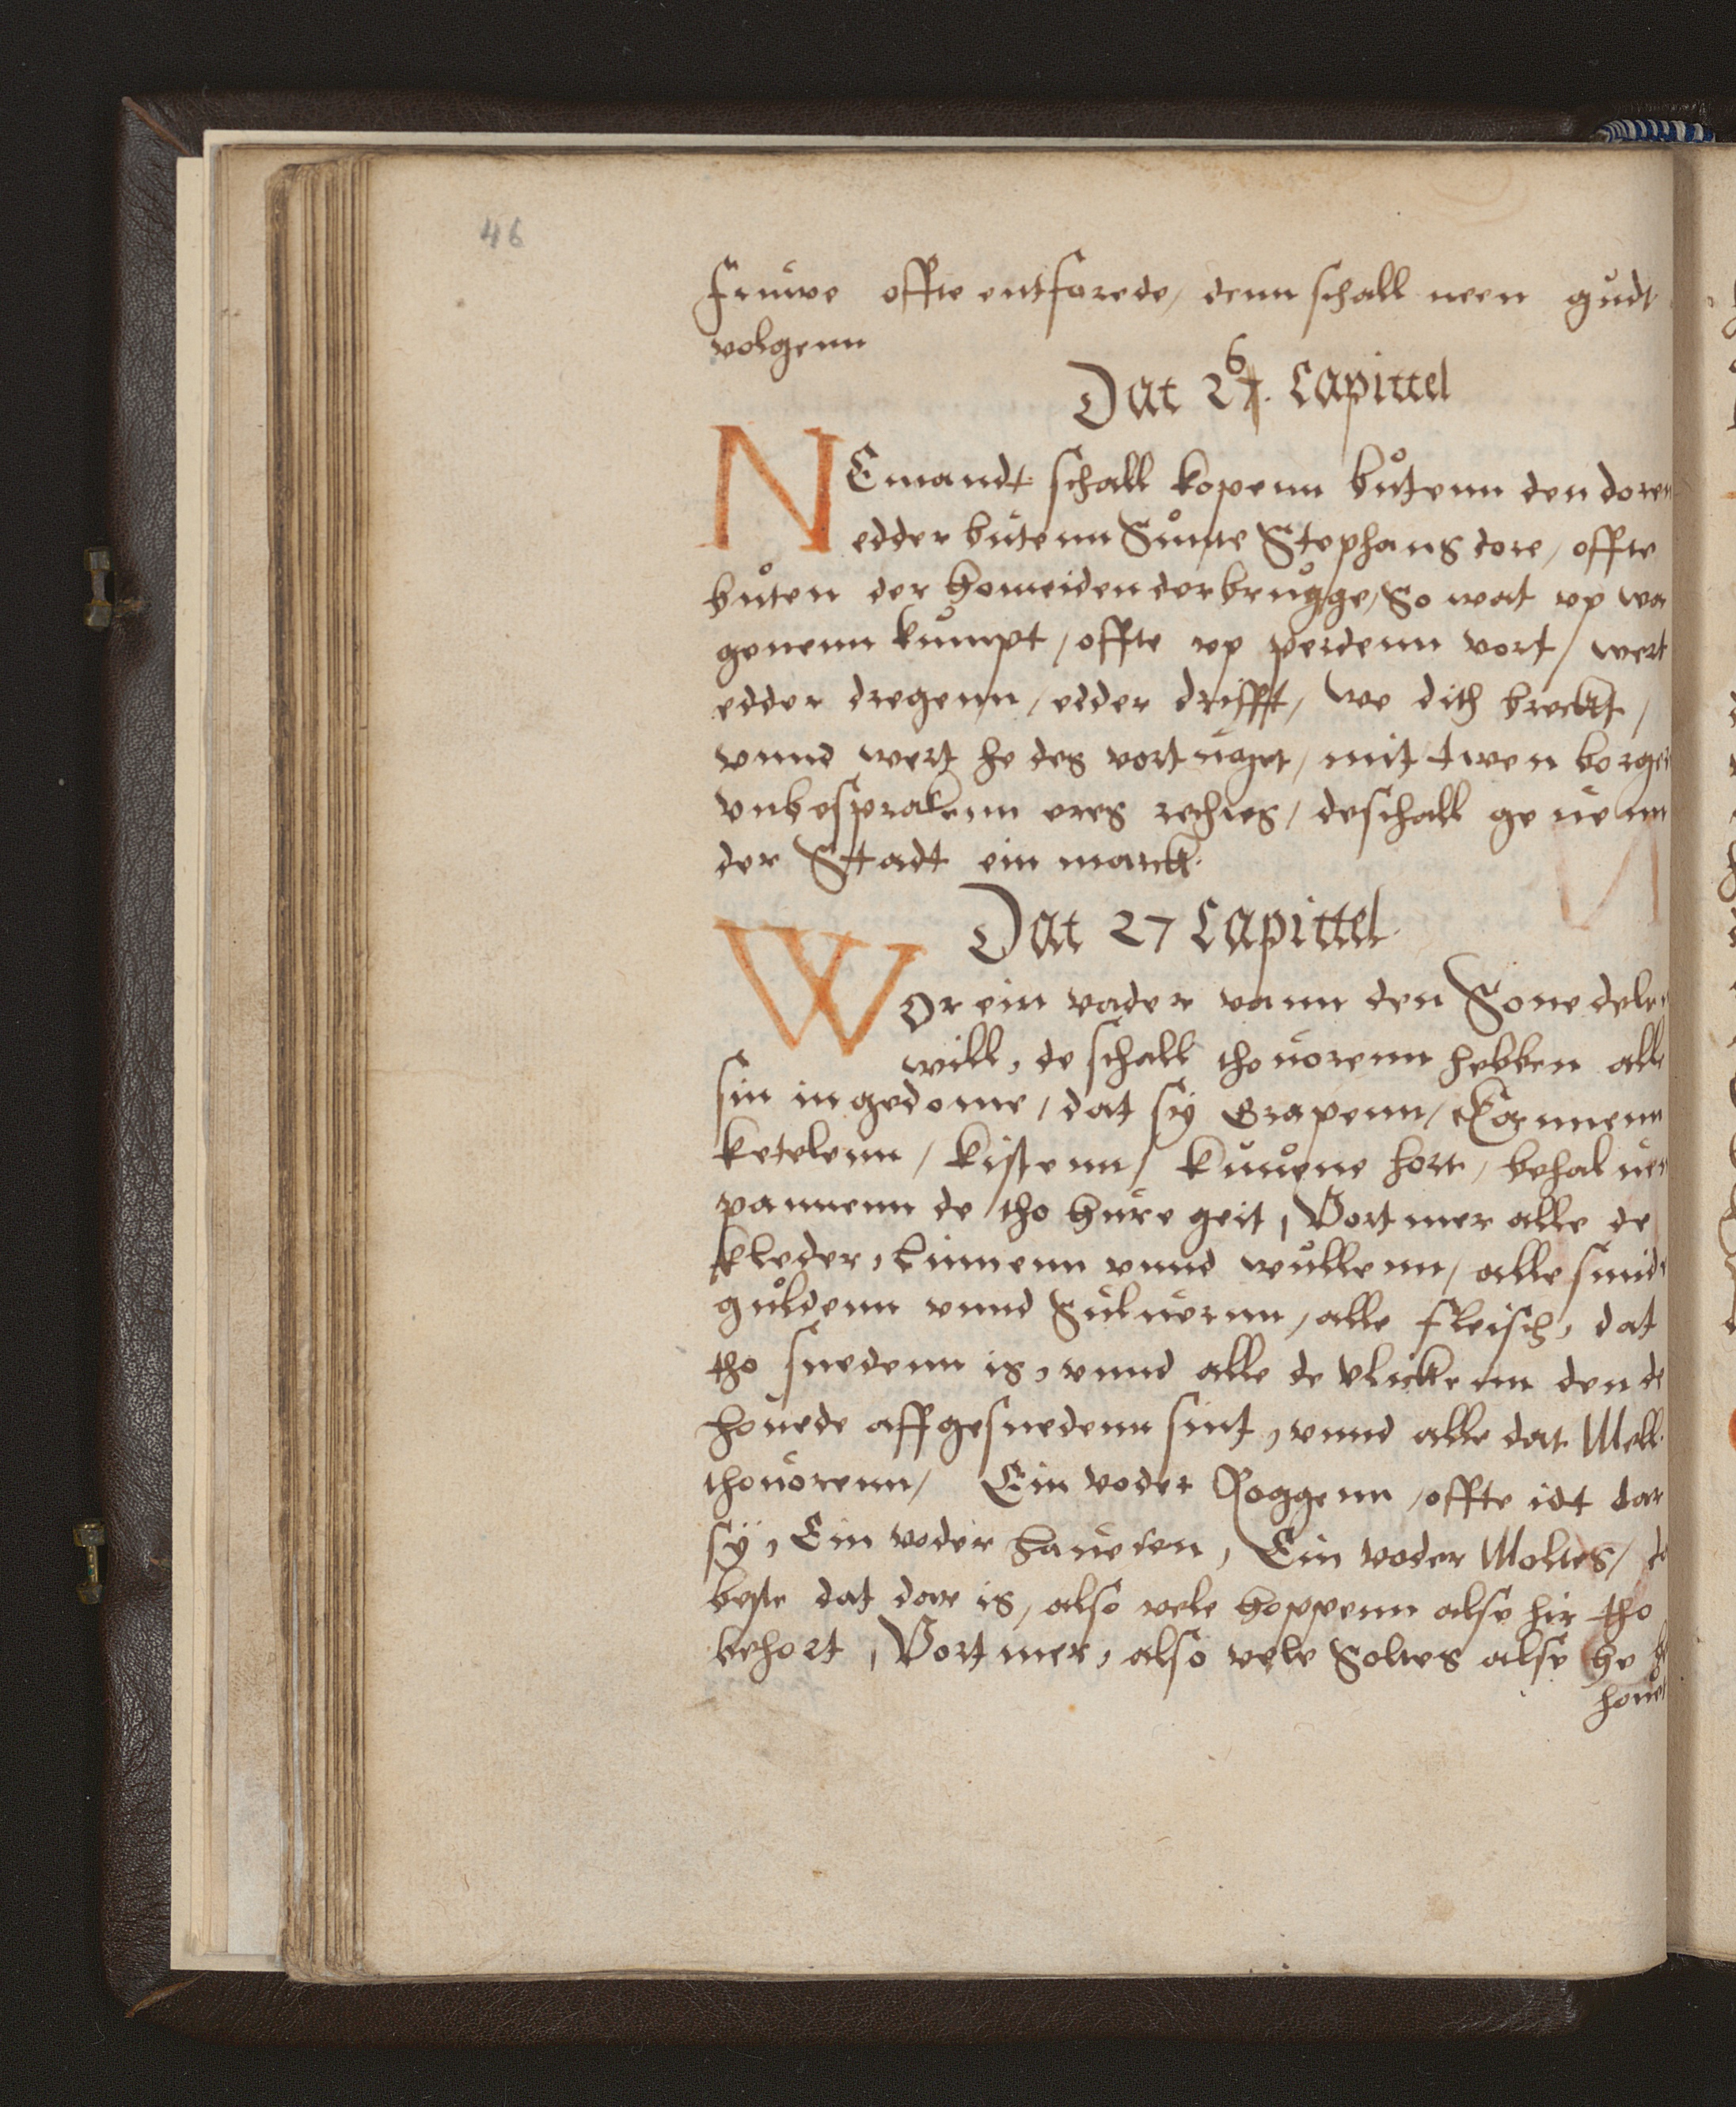 46
fruwe offte entforede, denn schall neen gudt
volgenn
6
Dat 27. Capittel
NEmandt schall kopenn butenn den doren
edder butenn Sunte Stephans dore, offte
buten der homeiden der brugge, So wat vp wa
genenn kumpt, offte vp perdenn vort, wert
edder dregenn, edder drifft, we dith breckt,
vnnd wert he des vortuget, mit twen borger
vnbesprakenn eres rechtes, de schall geuenn
der Stadt ein marck.
Dat 27 Capittel.
WOr ein vader vann den Sone delen
will, de schall tho uorenn hebben alle
sin ingedome, dat sy Grapenn, Kannenn
ketelenn, kistenn, kuuene fort, behaluen
pannenn de tho hure geit, Vortmer alle de
kleder, Linnenn vnnd wullenn, alle smide
guldenn vnnd Suluernn, alle fleisch, dat
tho snedenn is, vnnd alle de vlickenn den de
houede affgesnedenn sint, vnnd alle dat Mell
thouorenn, Ein voder Roggenn, offte idt dar
sÿ, Ein voder haueren, Ein voder Moltes, de
beste dat dar is, also vele hoppenn alse hir tho
behort, Vortmer, also vele Soltes alse he be
houet